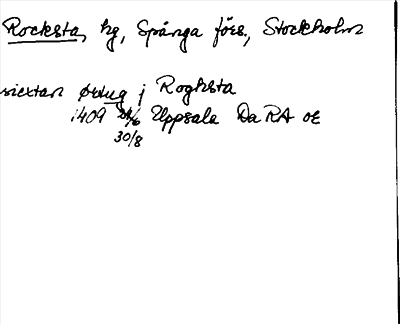 Rocksta, hg, Spånga förs., Stockholm
siextan ørtug j Rogksta
1409 Uppsala Da RA oe
30/8